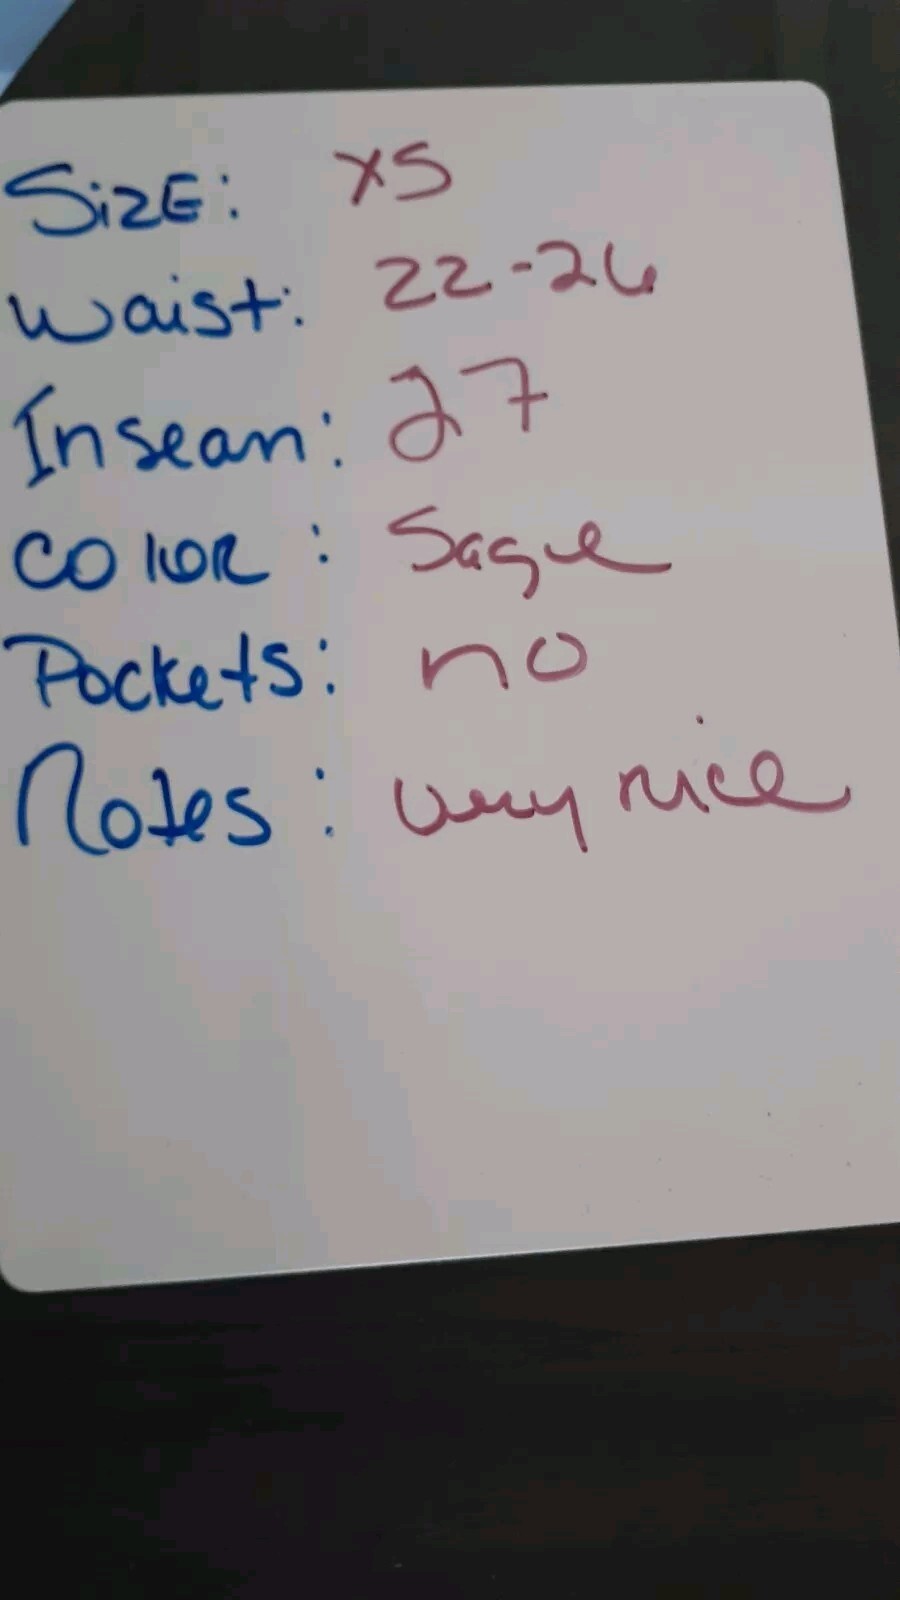 Size: XS
Waist: 22-26
Insean: 27
Color: Sage
Pockets: no
Notes: Very nice